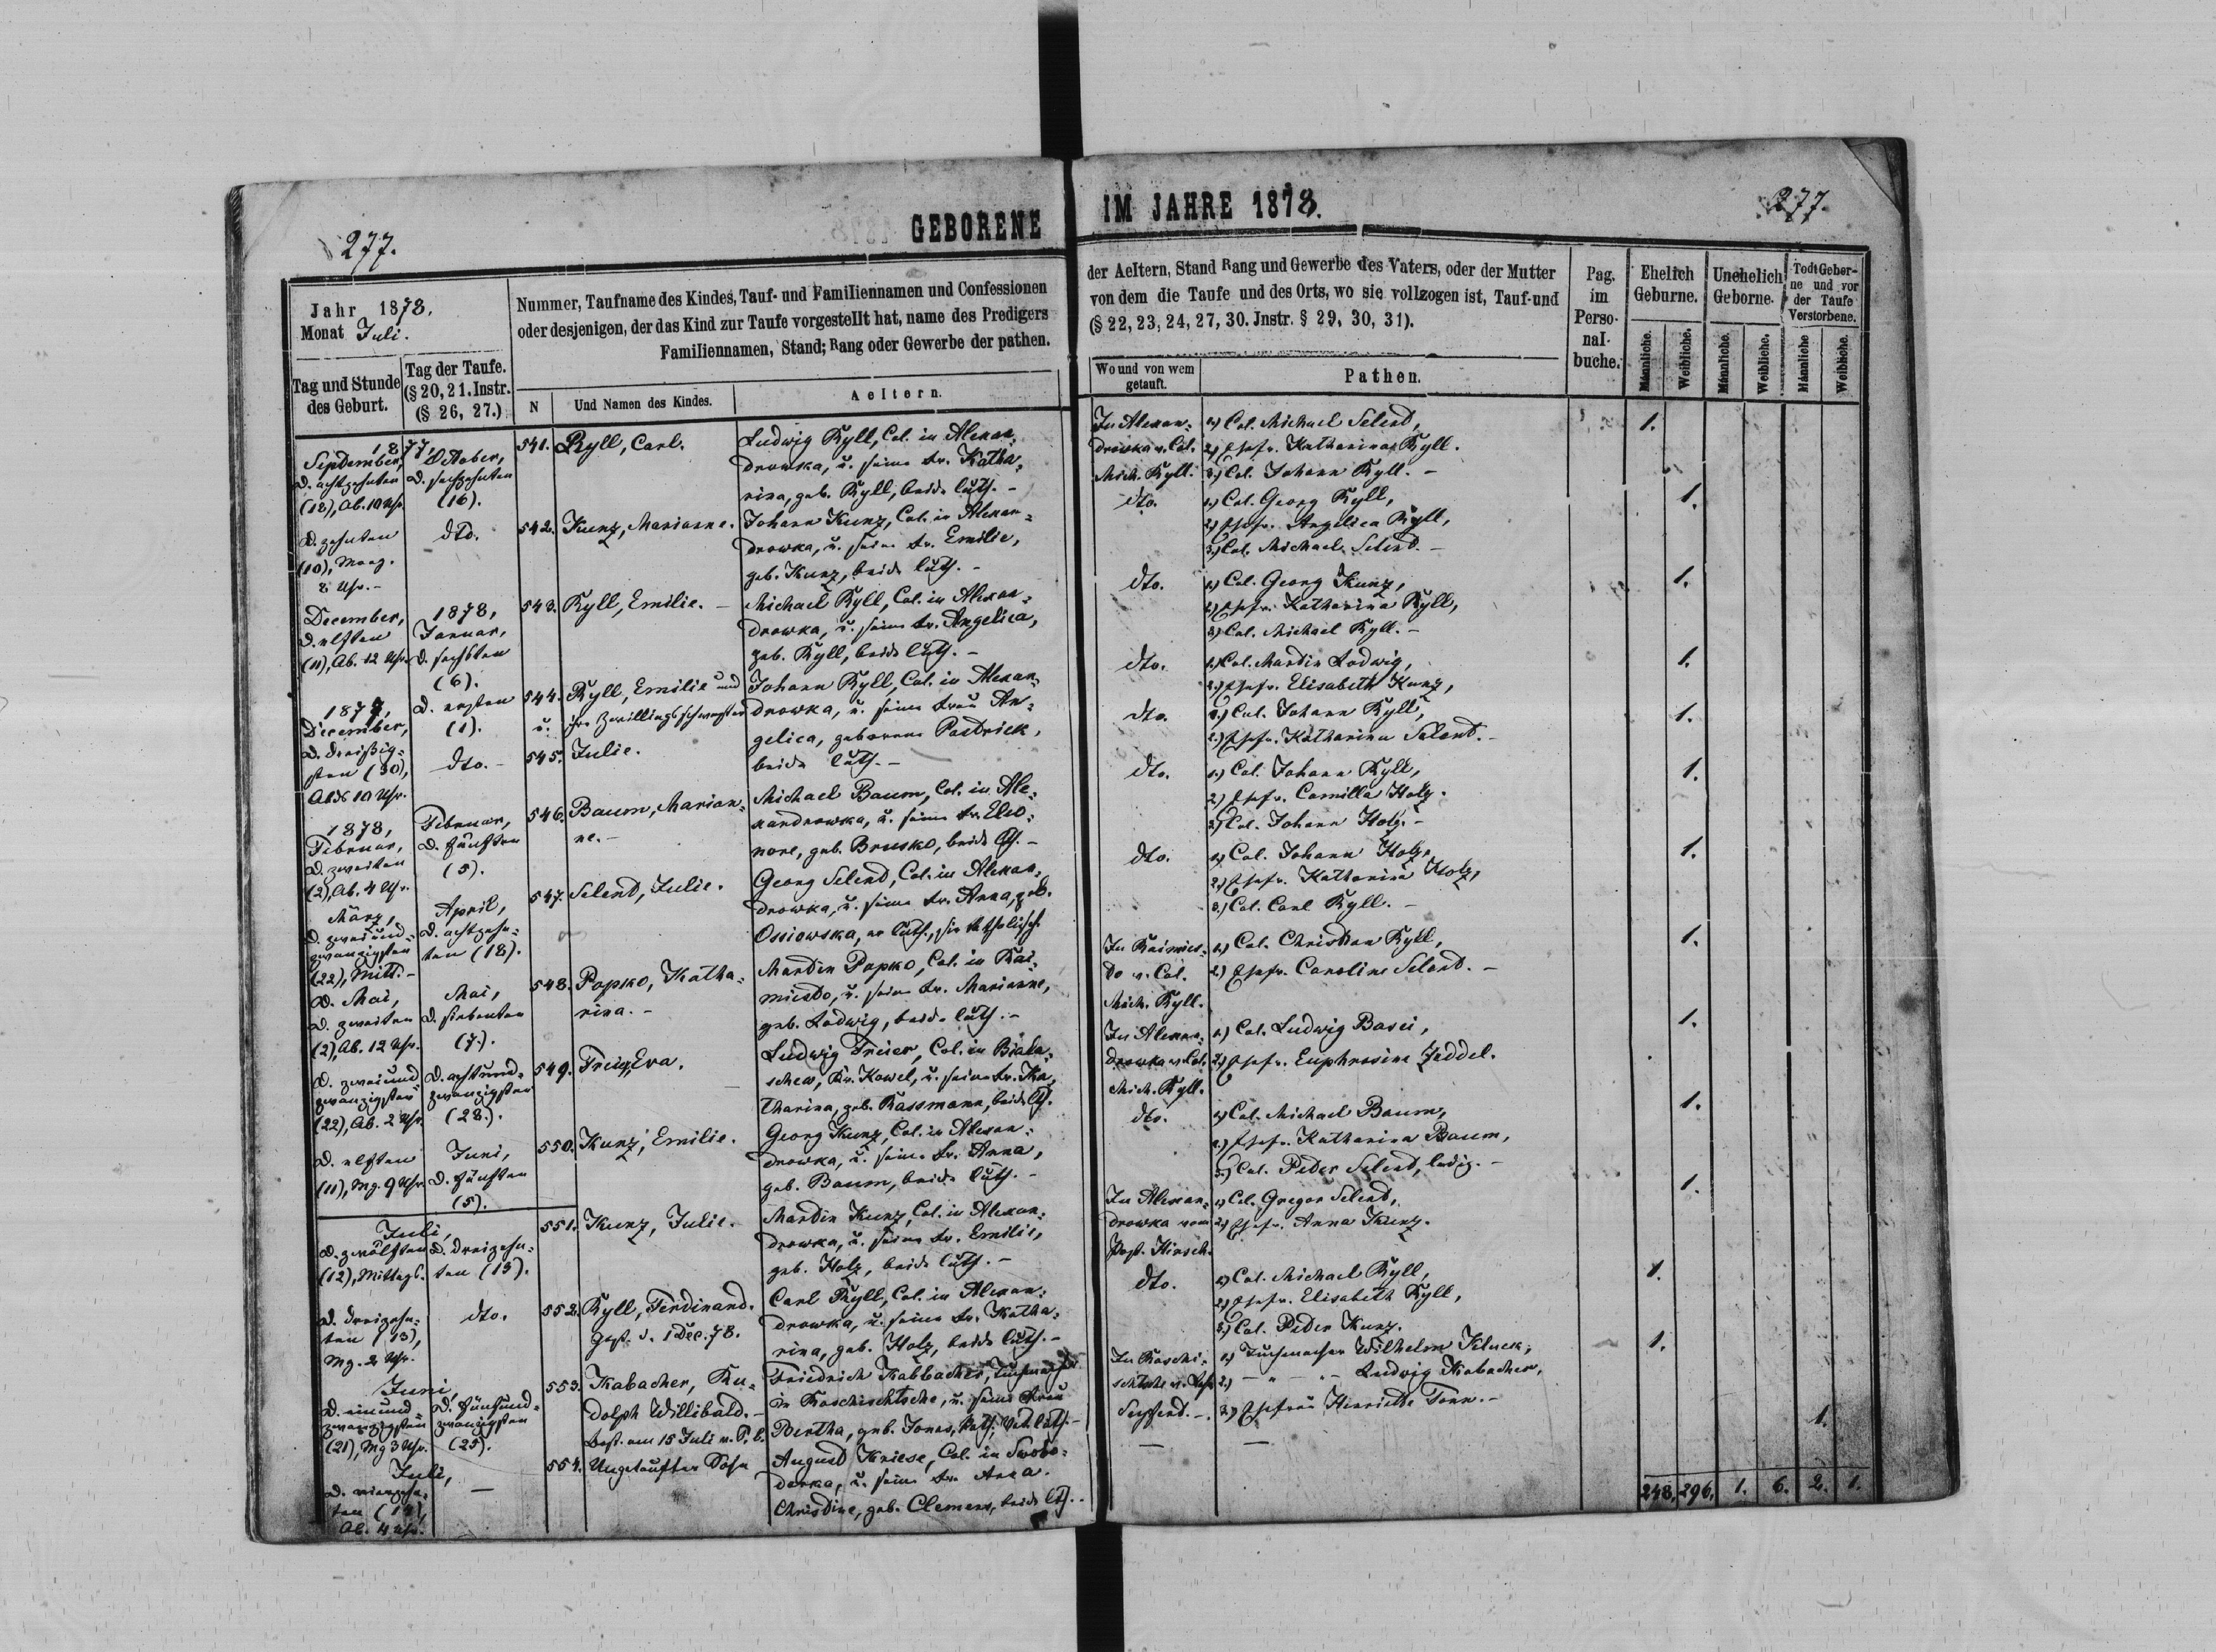 277.
GEBORENE
Jahr 1878.
Monat Juli.
Nummer, Taufname des Kindes, Tauf- und Familiennamen und Confessionen
oder desjenigen, der das Kind zur Taufe vorgestellt hat, name des Predigers
Familiennamen, Stand; Rang oder Gewerbe der pathen.
Tag und Stunde
des Geburt.
Tag der Taufe.
(§ 20, 21. Instr.
(§ 26, 27.)
N
Und Namen des Kindes.
Aeltern.
1877,
September,
d. achtzehnten
(18), Ab. 10 Uhr.
October,
d. sechzehnten
(16).
541. Ryll, Carl.
Ludwig Ryll, Col. in Alexan-
drowka, u. seine Fr. Katha-
rina, geb. Ryll, beide luth. -
d. zehnten
(10), Morg.
8 Uhr. -
dto.
542. Kunz, Marianne.
Johann Kunz, Col. in Alexan-
drowka, u. seine Fr. Emilie,
geb. Kunz, beide luth. -
December,
d. elften
(11), Ab. 12 Uhr.
1878,
Januar,
d. sechsten
(6).
543. Ryll, Emilie. -
Michael Ryll, Col. in Alexan-
drowka, u. seine Fr. Angelica,
geb. Ryll, beide luth. -
1877,
December,
d. dreißig-
sten (30),
Abds 10 Uhr.
d. ersten
(1).
dto. -
544. Ryll, Emilie und
u. ihre Zwillingsschwester
545. Julie.
Johann Ryll, Col. in Alexan-
drowka, u. seine Frau An-
gelica, geborene Pastrick,
beide luth. -
1878,
Februar,
d. zweiten
(2), Ab. 4 Uhr.
Februar,
d. fünften
(5).
546. Baum, Marian-
ne. -
Michael Baum, Col. in Ale-
xandrowka, u. seine Fr. Eleo-
nore, geb. Brusko, beide lth. -
März,
d. zweiund-
zwanzigsten
(22), Mitt. -
April,
d. achtzehn-
ten (18).
547. Selend, Julie.
Georg Selend, Col. in Alexan-
drowka, u. seine Fr. Anna, geb.
Ossiowska, er luth., sie katholisch.
d. Mai,
d. zweiten
(2), Ab. 12 Uhr.
Mai,
d. siebenten
(7.).
548. Popko, Katha-
rina. -
Martin Popko, Col. in Kai-
miesto, u. seine Fr. Marianne,
geb. Ludwig, beide luth. -
d. zweiund
zwanzigsten
(22), Ab. 2 Uhr.
d. achtund-
zwanzigsten
(28.).
549. Freier, Eva.
Ludwig Freier, Col. in Biala-
schew, Kr. Kowel, u. seine Fr. Ka-
tharina, geb. Rassmann, beide lth.
d. elften
(11), Mg. 9 Uhr.
Juni,
d. fünften
(5).
550. Kunz, Emilie.
Georg Kunz, Col. in Alexan-
drowka, u. seine Fr. Anna,
geb. Baum, beide luth. -
Juli,
d. zwölften
(12), Mittags.
d. dreizehn-
ten (13).
551. Kunz, Julie.
Martin Kunz, Col. in Alexan-
drowka, u. seine Fr. Emilie,
geb. Holz, beide luth. -
d. dreizehn-
ten (13),
Mg. 2 Uhr.
dto.
552. Ryll, Ferdinand.
gest. d. 1 Dec. 78.
Carl Ryll, Col. in Alexan-
drowka, u. seine Fr. Katha-
rina, geb. Holz, beide luth. -
Juni,
d. einund-
zwanzigsten
(21), Mg 3 Uhr.
d. fünfund-
zwanzigsten
(25).
553. Kabacher, Ru-
dolph Willibald. -
Best. am 15 Juli v. P. C.
Friedrich Kabbacher, Tuchmacher
in Roschischtsche, u. seine Frau
Bertha, geb. Jonas,
Juli,
d. vierzehn-
ten (14),
Ab. 4 Uhr.
—
554. Ungetaufter Sohn
August Kriese, Col. in Swobo-
darka, u. seine Fr. Anna
Christine, geb. Clemens, beide lth. -
IM JAHRE 1878.
277.
der Aeltern, Stand Rang und Gewerbe des Vaters, oder der Mutter
von dem die Taufe und des Orts, wo sie vollzogen ist, Tauf-und
(§ 22, 23, 24, 27, 30. Jnstr. § 29, 30, 31).
Wo und von wem
getauft.
Pathen.
Pag.
im
Perso-
nal-
buche.
Ehelich
Geburne.
Unehelich
Geborne.
Todt Gebor-
ne und vor
der Taufe
Verstorbene.
Männliche.
Weibliche.
Männliche.
Weibliche.
Männliche
Weibliche.
In Alexan-
drowka v. Col.
Mich. Ryll.
1.) Col. Michael Selend,
2.) Ehefr. Katharina Ryll.
3.) Col. Johann Ryll. -
1.
dto.
1.) Col. Georg Ryll,
2.) Ehefr. Angelica Ryll,
3.) Col. Michael Selend. -
1.
dto.
1.) Col. Georg Kunz,
2.) Ehefr. Katharina Ryll,
3.) Col. Michael Ryll. -
1.
dto.
1.) Col. Martin Ludwig,
2.) Ehefr. Elisabeth Kunz,
1.
dto.
1.) Col. Johann Ryll,
2.) Ehefr. Katharina Selend. -
1.
dto.
1.) Col. Johann Ryll,
2.) Ehefr. Camilla Holz.
3.) Col. Johann Holz. -
1.
dto.
1.) Col. Johann Holz,
2.) Ehefr. Katharina Holz,
3.) Col. Carl Ryll. -
1.
In Kaimies-
to v. Col.
Mich. Ryll.
1.) Col. Christian Ryll,
2.) Ehefr. Caroline Selend. -
1.
In Alexan-
drowka v. Col.
Mich. Ryll.
1.) Col. Ludwig Basei,
2.) Ehefr. Euphrosine Jeddel.
1.
dto.
1.) Col. Michael Baum,
2.) Ehefr. Katharina Baum,
3.) Col. Peter Selend, ledig. -
1.
In Alexan-
drowka vom
Past. Hirsch.
1.) Col. Gregor Selend,
2.) Ehefr. Anna Kunz.
1.
dto.
1.) Col. Michael Ryll,
2.) Ehefr. Elisabeth Ryll,
3.) Col. Peter Kunz.
1.
In Roschi-
schtsche v.
1.) Tuchmacher Wilhelm Kluck,
2.) — " — " — Ludwig Kabacher,
3.) Ehefrau Henriette Tonn. -
1.
—
—
1.
248. 296. 1. 6. 2. 1.